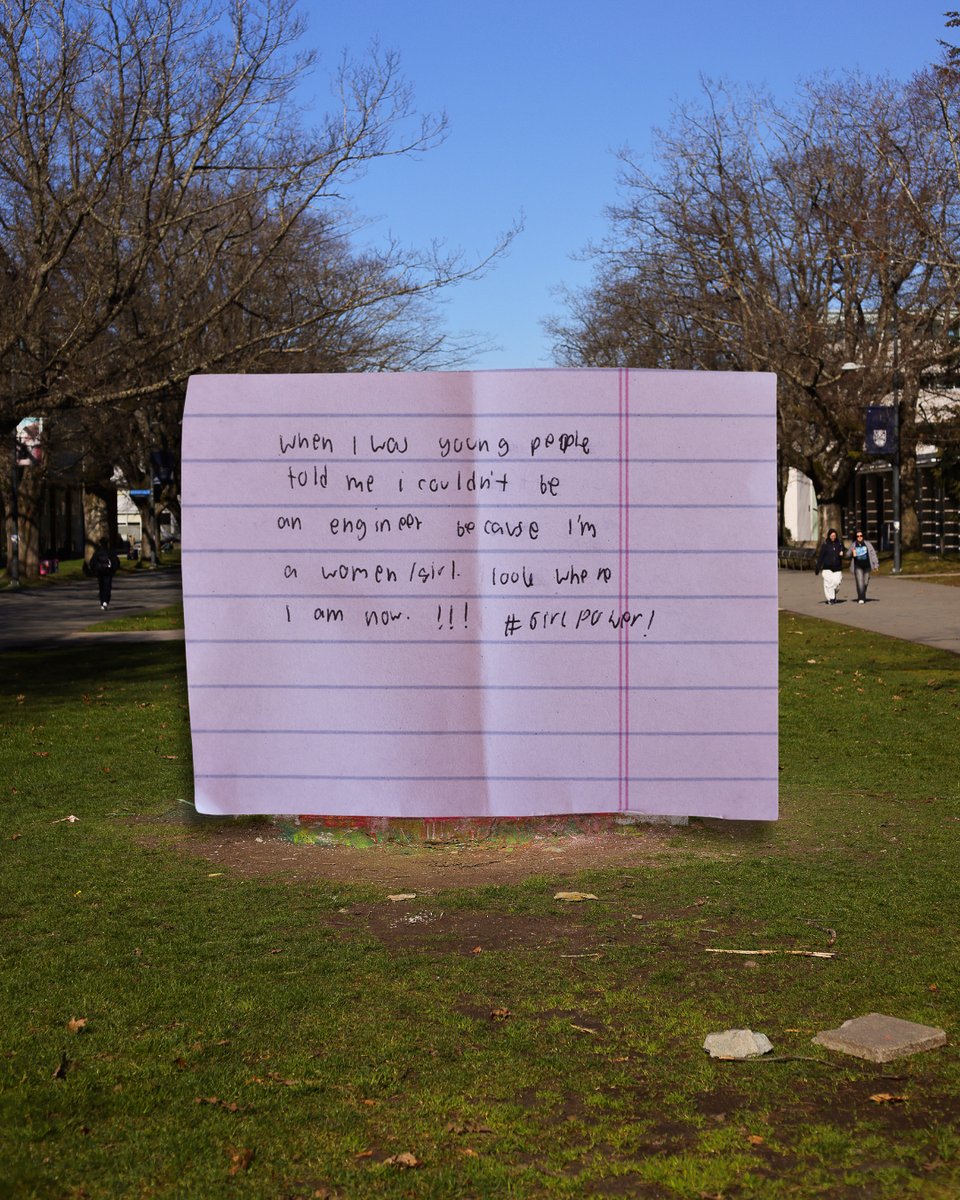 When I was young people
told me i couldn't be
an engineer because I'm
a women/girl. look where
I am now. !!! #Girl power!